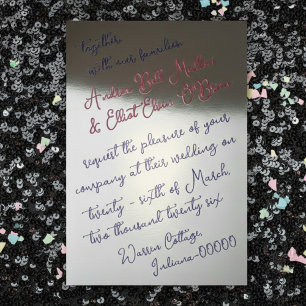 Together,
with our families
Andrea Bell Muller
& Elliot Edwin O'Brien
request the pleasure of your
company at their wedding on
twenty - sixth of March,
two thousand twenty six
Warren Cottage,
Juliana-00000